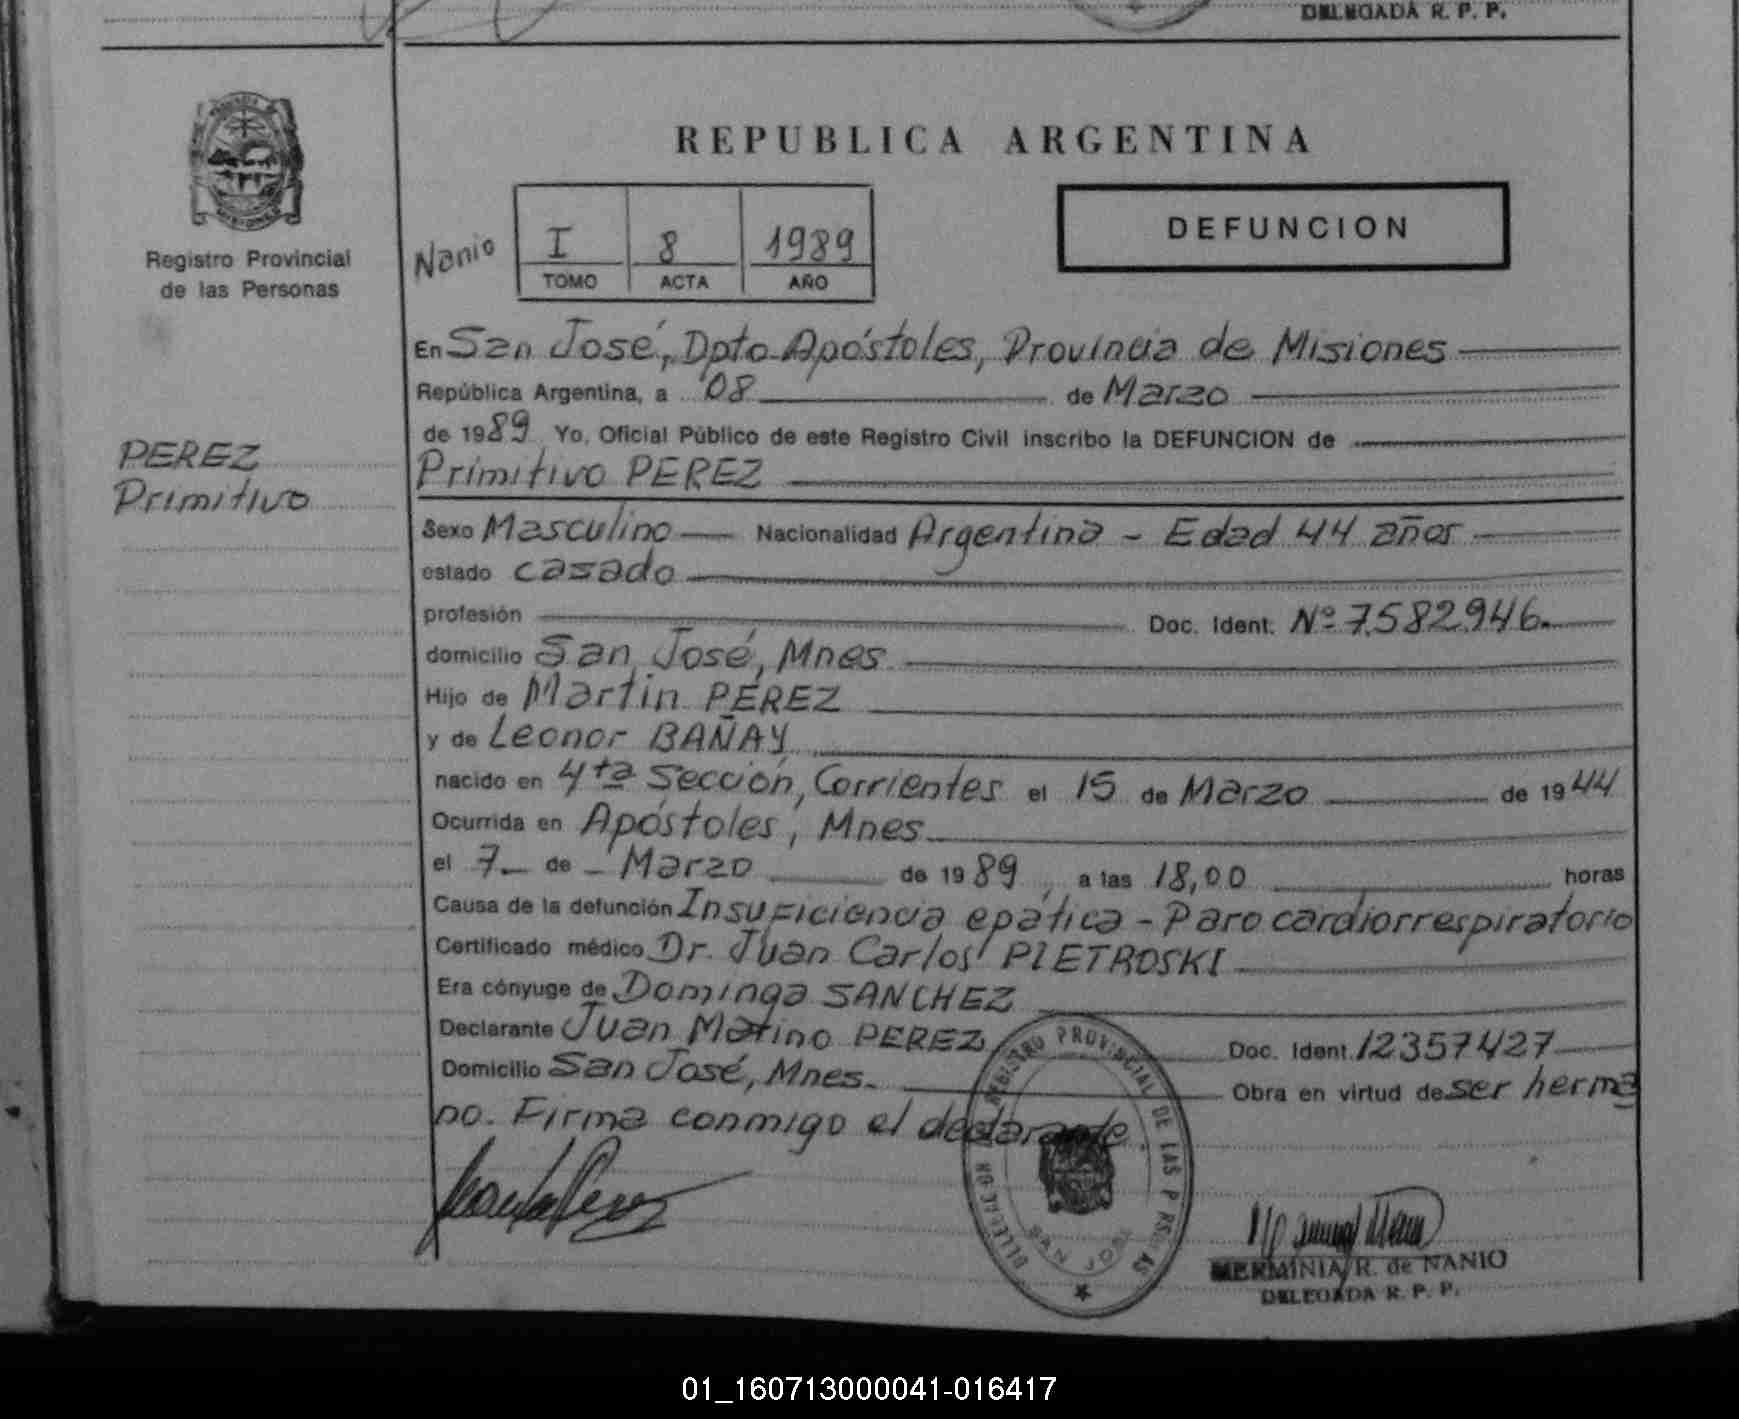 DELEGADA R. P. P.
REPUBLICA ARGENTINA
Registro Provincial
de las Personas
Nanio
I 8 1989
TOMO ACTA AÑO
DEFUNCION
En San José, Dpto Apóstoles, Provincia de Misiones
República Argentina, a 08 de Marzo
de 1989 Yo, Oficial Público de este Registro Civil inscribo la DEFUNCION de
PEREZ
Primitivo
Primitivo PEREZ
Sexo Masculino Nacionalidad Argentina - Edad 44 años
estado casado
profesión Doc. Ident. Nº 7.582.946.
domicilio San José, Mnes
Hijo de Martin PÉREZ
y de Leonor BAÑAY
nacido en 4ta Sección, Corrientes el 15 de Marzo de 1944
Ocurrida en Apóstoles, Mnes
el 7 de Marzo de 1989, a las 18,00 horas
Causa de la defunción Insuficiencia epática - Paro cardiorrespiratorio
Certificado médico Dr. Juan Carlos PIETROSKI
Era cónyuge de Dominga SANCHEZ
Declarante Juan Matino PEREZ Doc. Ident. 12357427
Domicilio San José, Mnes. Obra en virtud de ser herma
no. Firma conmigo el declarante.
DELEGACION REGISTRO PROVINCIAL DE LAS PERSONAS
SAN JOSE
HERMINIA R. de NANIO
DELEGADA R. P. P.
01_160713000041-016417